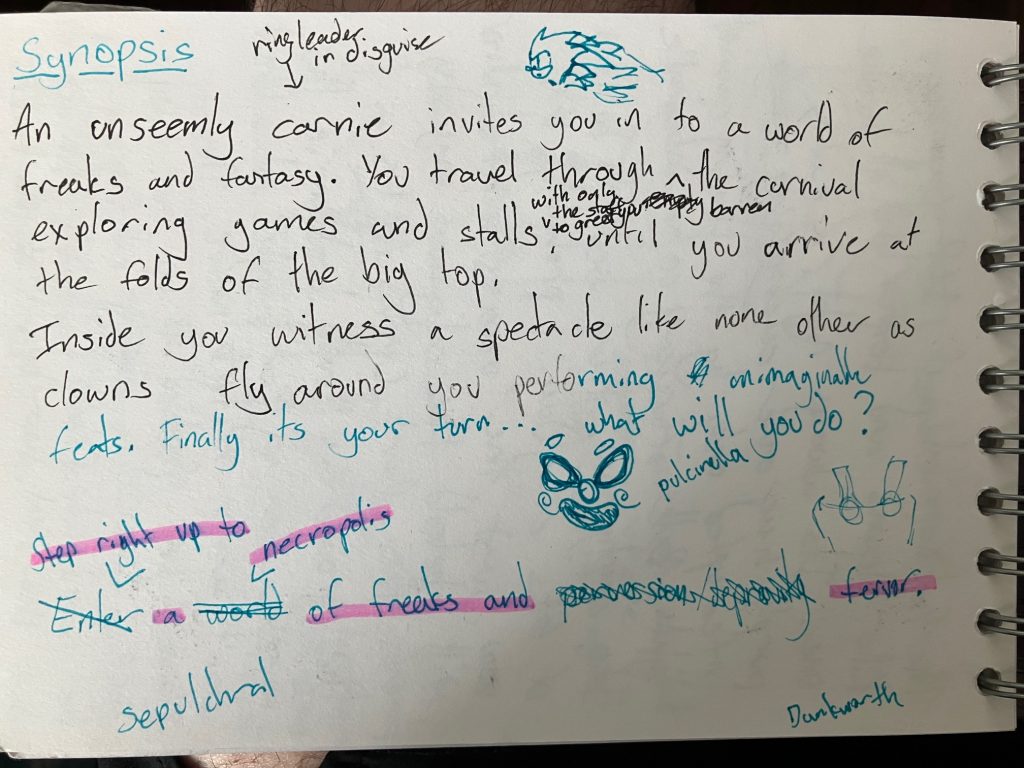 Synopsis
ringleader
in disguise
An unseemly carnie invites you in to a world of
freaks and fantasy. You travel through the carnival
with only
the
barren
to great
exploring games and stalls until you arrive at
the folds of the big top.
Inside you witness a spectacle like none other as
clowns fly around you performing unimaginable
feats. Finally its your turn... what will you do?
pulcinella
Step right up to
necropolis
Enter a world of freaks and perversion/depravity fervor.
sepulchral
Dankworth